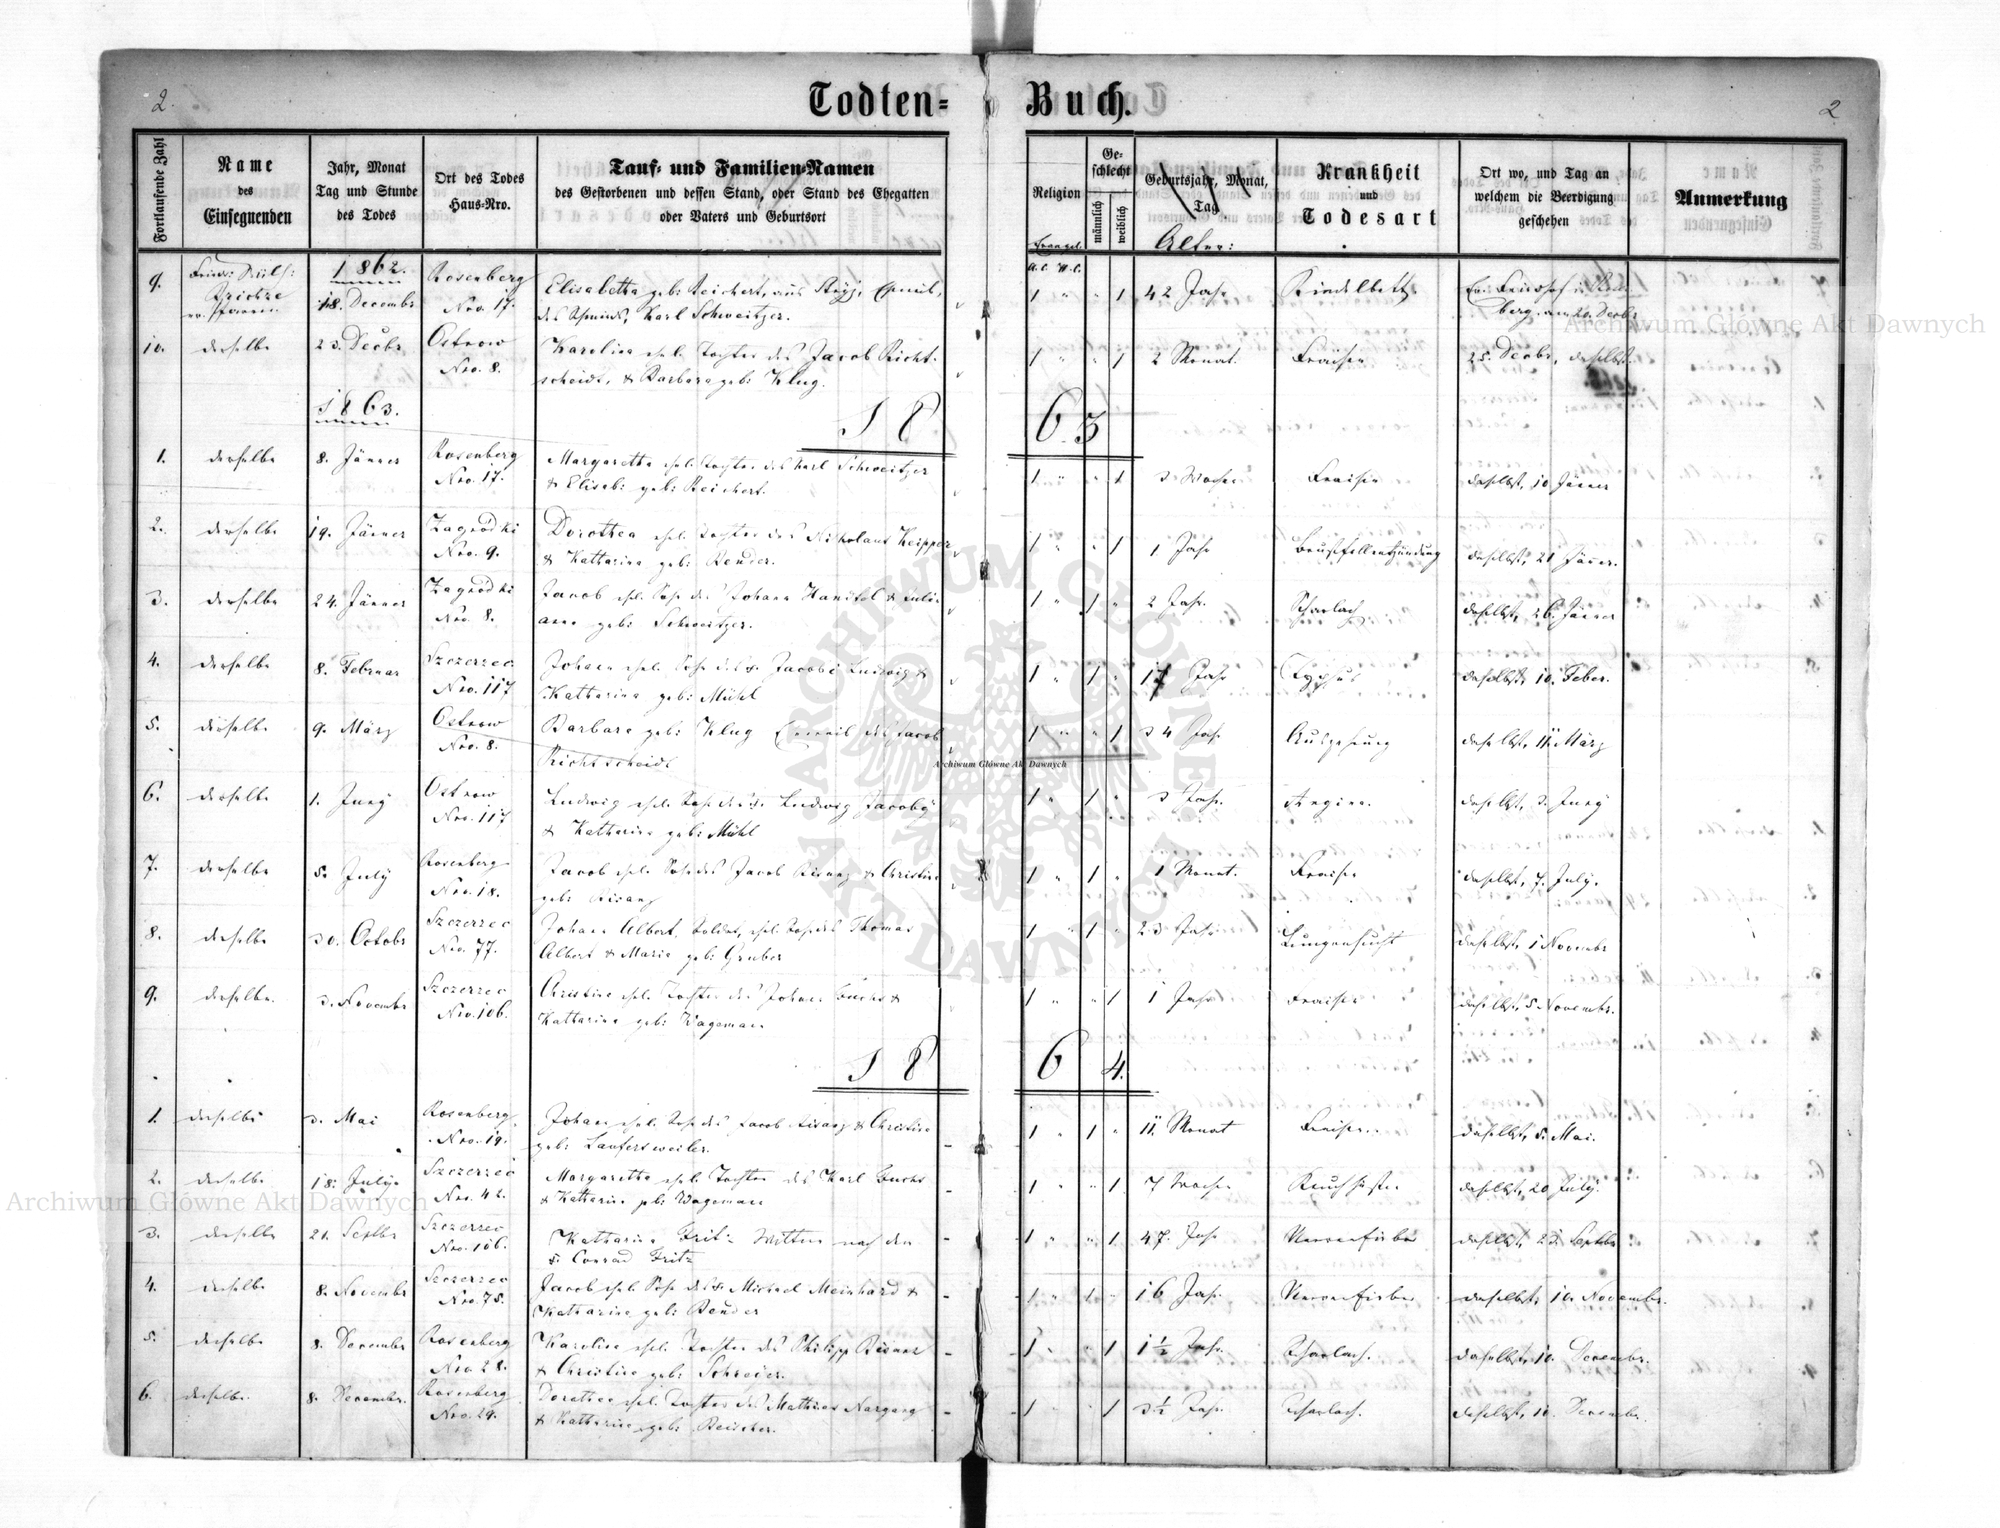 2.
Todten-
Buch.
2
Fortlaufende Zahl
Name
des
Einsegnenden
Jahr, Monat
Tag und Stunde
des Todes
Ort des Todes
Haus-Nro.
Tauf- und Familien-Namen
des Gestorbenen und dessen Stand, oder Stand des Ehegatten
oder Vaters und Geburtsort
Religion
Ge-
schlecht
männlich
weiblich
Geburtsjahr, Monat,
Tag
Alter:
Krankheit
und
Todesart
Ort wo, und Tag an
welchem die Beerdigung
geschehen
Anmerkung
Evangel.
A.C. H.C.
1862.
9.
18. Decembr
Rosenberg
Nro. 17.
Elisabetha geb: Reichert, aus
des Karl Schweitzer.
1 " " 1
42 Jahr
Kindelbett
berg. am 20. Decbr
10. derselbe
23. Decbr
Ostrow
Nro. 8.
Karolina ehel. Tochter des Jacob Richt-
scheidt, & Barbara geb: Klug.
1 " " 1
2 Monat.
Fraisen
25. Decbr, daselbst.
1863.
1863
1. derselbe
8. Jänner
Rosenberg
Nro. 17.
Margaretha ehel. Tochter des Karl Schweitzer
& Elisab: geb: Reichert.
1 " " 1
3 Wochen
Fraisen
daselbst, 10 Jänner
2. derselbe
19. Jänner
Zagrodki
Nro. 9.
Dorothea ehel. Tochter des Nikolaus Keipper
& Katharina geb: Bender.
1 " " 1
1 Jahr
Brustfellentzündung
daselbst, 21 Jänner.
3. derselbe
24. Jänner
Zagrodki
Nro. 8.
Jacob ehel. Sohn des Johann Hanitel & Juli-
anna geb: Schweitzer.
1 " 1 "
2 Jahr.
Scharlach
daselbst, 26. Jänner
4. derselbe
8. Februar
Szczerzec
Nro. 117
Johann ehel. Sohn des Jacobi Ludwig &
Katharina geb: Mühl
1 " 1 "
Jahr
Typhus
daselbst, 10. Feber.
5. derselbe
9. März
Ostrow
Nro. 8.
Barbara geb: Klug Eheweib des Jacob
Richtscheidt
1 " " 1
34 Jahr
Auszehrung
daselbst, 11. März
6. derselbe
1. Juny
Ostrow
Nro. 117
Ludwig ehel. Sohn des Ludwig Jacoby
& Katharina geb: Mühl
1 " 1 "
3 Jahr.
Angina.
daselbst, 3. Juny
7. derselbe
5. July
Rosenberg
Nro. 18.
Jacob ehel. Sohn des Jacob Bisanz & Christina
geb: Bisanz
1 " 1 "
1 Monat.
Fraisen
daselbst, 7. July.
8. derselbe
30. Octobr
Szczerzec
Nro. 77.
Johann Albert, Soldat, ehel. Sohn des Thomas
Albert & Maria geb: Gruber
1 " 1 "
23 Jahr
Lungensucht
daselbst, 1 Novembr
9. derselbe.
3. Novembr
Szczerzec
Nro. 106.
Christina ehel. Tochter des Johann Fuchs &
Katharina geb: Wagemann
1 " " 1
1 Jahr
Fraisen
daselbst, 5. Novembr.
1864.
1. derselbe
3. Mai
Rosenberg
Nro. 19.
Johann ehel. Sohn des Jacob Bisanz & Christina
geb: Laufersweiler.
1 " 1 "
11. Monat
Fraisen.
daselbst, 5. Mai.
2. derselbe
18. July.
Szczerzec
Nro. 42.
Margaretha ehel. Tochter des Karl Fuchs
& Katharina geb: Wagemann
1 " " 1
7 Wochen
Keuchhusten
daselbst, 20 July.
3. derselbe
21. Septbr
Szczerzec
Nro. 106.
Katharina Fritz Wittwe nach dem
Conrad Fritz
1 " " 1.
47. Jahr
Nervenfieber
daselbst, 23. Septbr
4. derselbe
8. Novembr
Szczerzec
Nro. 75.
Jacob ehel. Sohn des Michael Meinhard &
Katharina geb: Bender
1 " 1 "
16 Jahr.
Nervenfieber
daselbst, 10. Novembr.
5. derselbe
8. Decembr
Rosenberg
Nro. 28.
Karolina ehel. Tochter des Philipp Bisanz
& Christina geb: Schreier.
1 " " 1
1 1/2 Jahr.
Scharlach.
daselbst, 10. Decembr.
6. derselbe.
8. Decembr.
Rosenberg
Nro. 29.
Dorothea ehel. Tochter des Mathias Nargang
& Katharina geb:
1 " " 1
3 1/2 Jahr.
Scharlach.
daselbst, 10 Decembr.
Archiwum Główne Akt Dawnych
Archiwum Główne Akt Dawnych
Archiwum Główne Akt Dawnych
ARCHIWUM GŁÓWNE AKT DAWNYCH